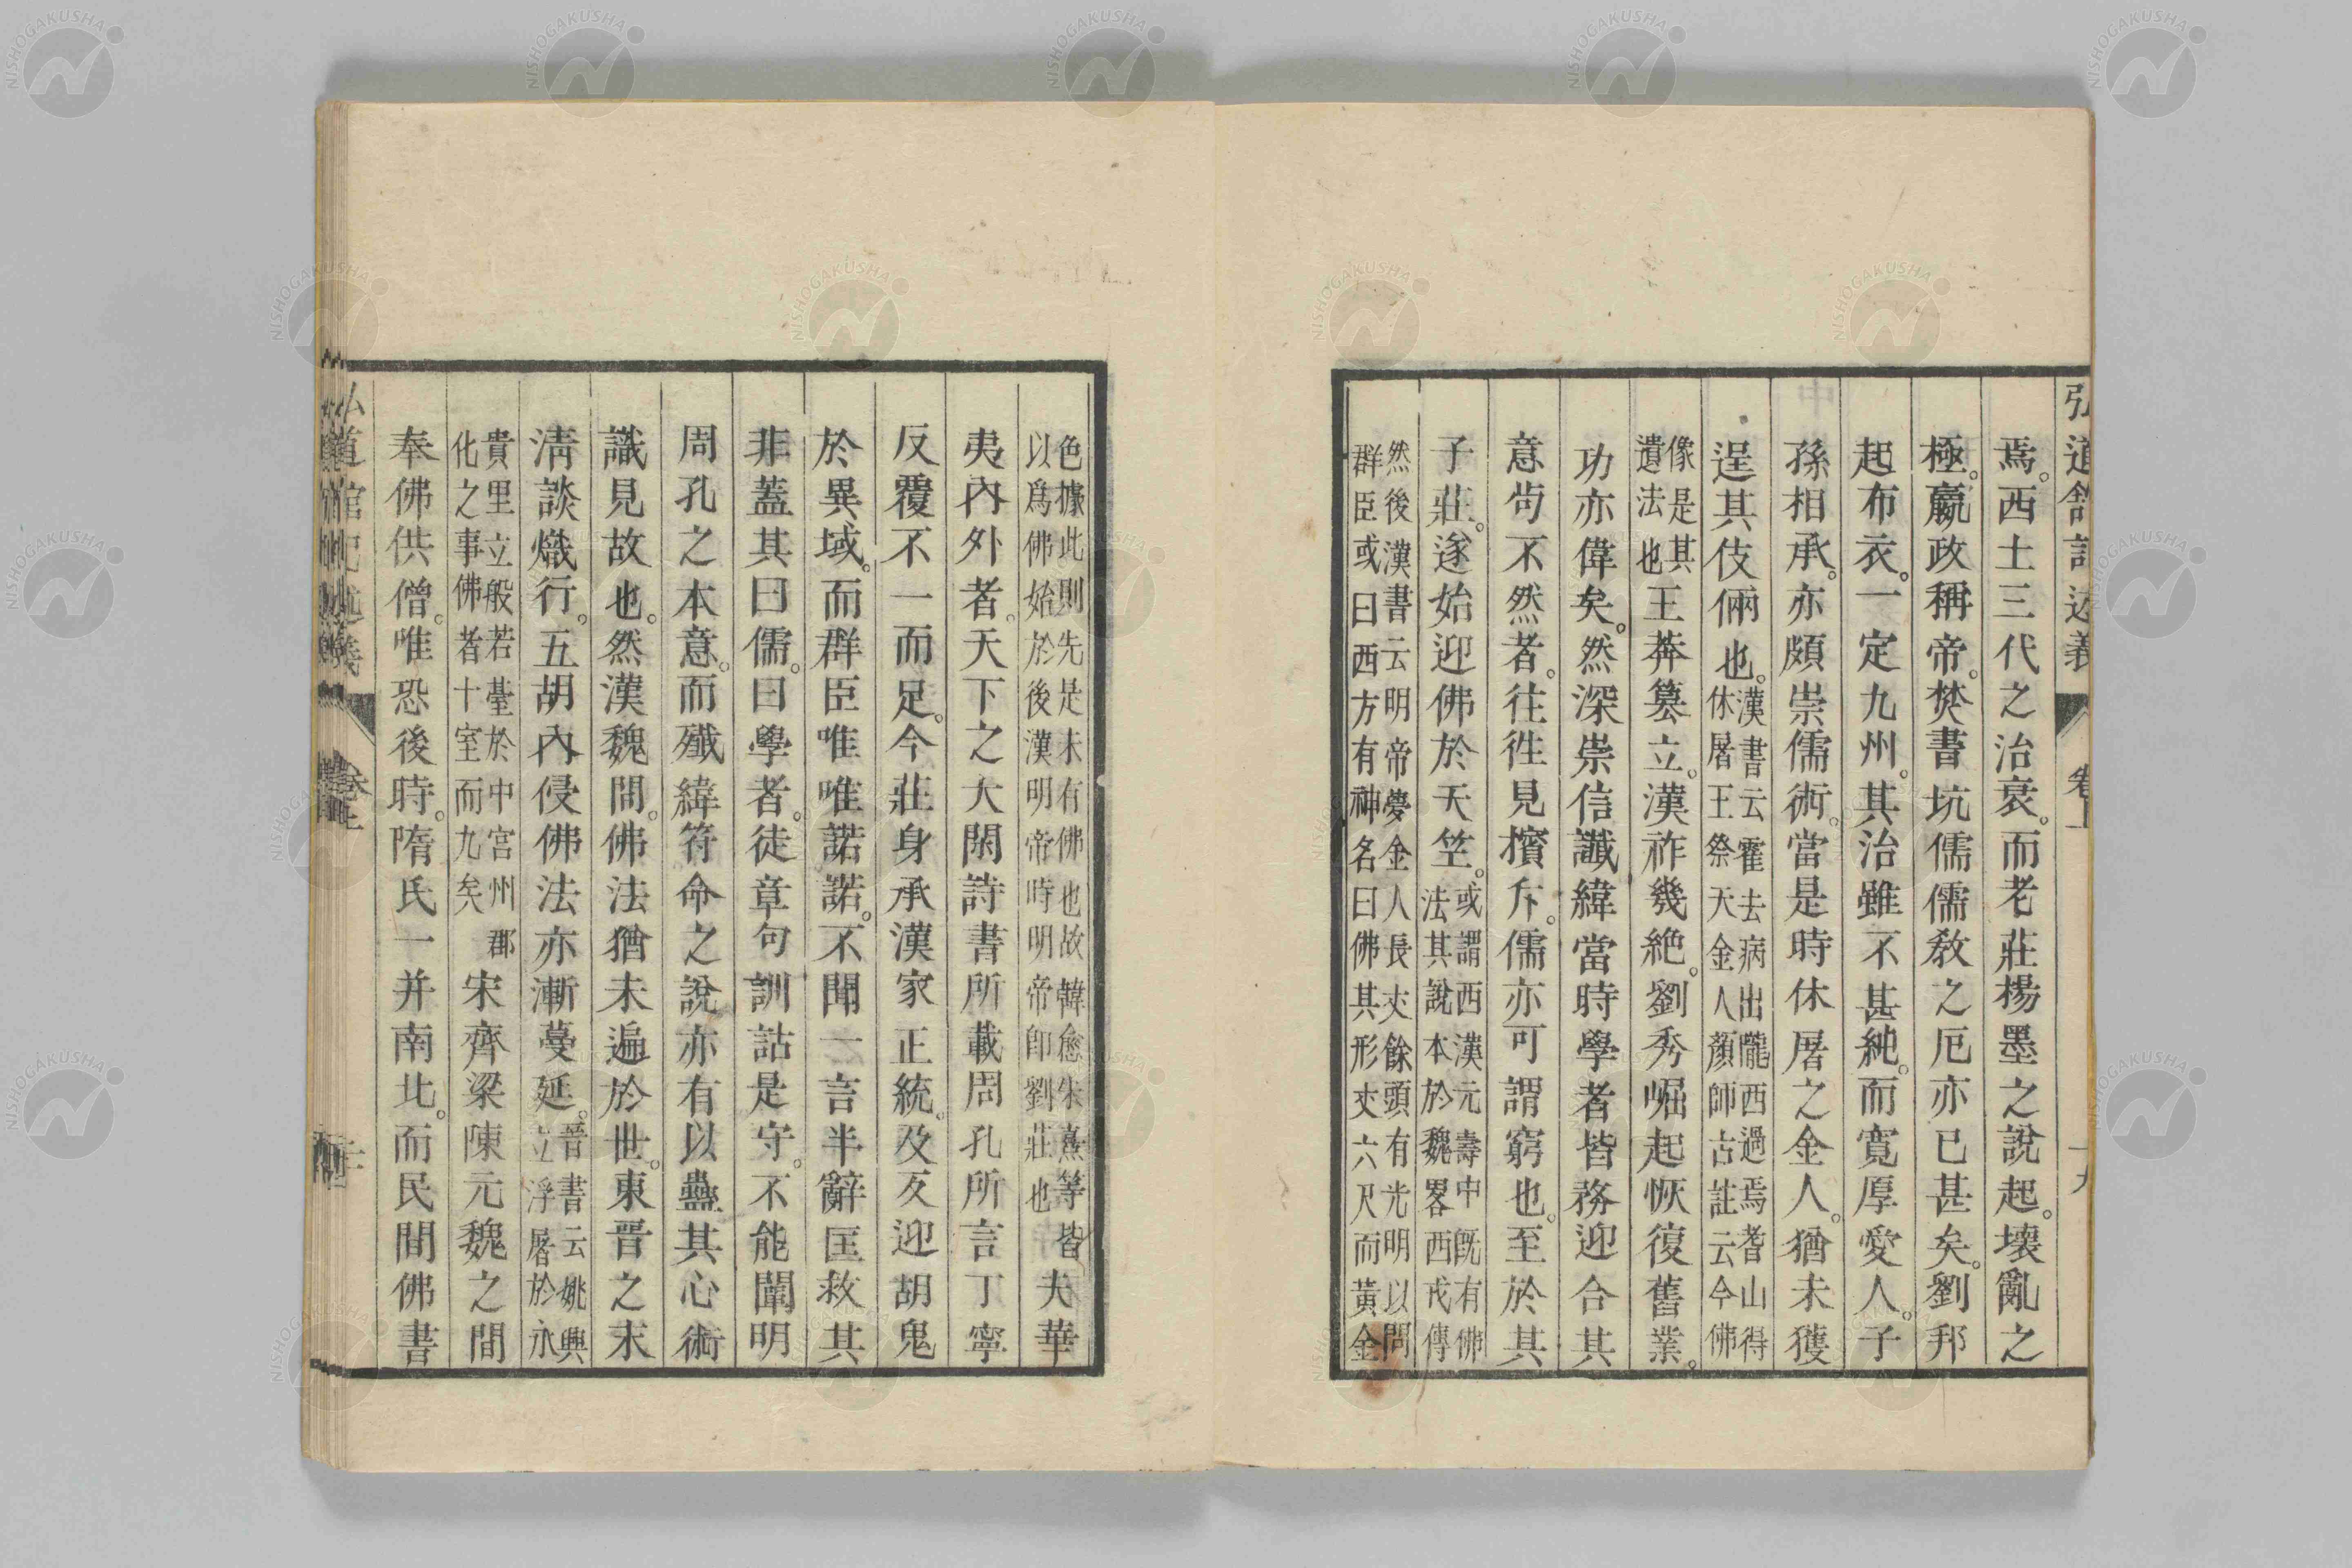 弘道館記述義 卷上 十九
焉。西土三代之治衰。而老莊楊墨之說起。壞亂之
極。嬴政稱帝。焚書坑儒儒教之厄亦已甚矣。劉邦
起布衣。一定九州。其治雖不甚純。而寬厚愛人。子
孫相承。亦頗崇儒術。當是時休屠之金人。猶未獲
逞其伎倆也。漢書云霍去病出隴西過焉耆山得休屠王祭天金人顏師古註云今佛
像是其遺法也王莽篡立。漢祚幾絕。劉秀崛起恢復舊業。
功亦偉矣。然深崇信讖緯當時學者皆務迎合其
意尚不然者。往往見擯斥。儒亦可謂窮也。至於其
子莊。遂始迎佛於天竺。或謂西漢元壽中既有佛法其說本於魏畧西戎傳
然後漢書云明帝夢金人長大餘頭有光明以問群臣或曰西方有神名曰佛其形丈六尺而黃金
色據此則先是未有佛也故韓愈朱熹等皆以爲佛始於後漢明帝時明帝卽劉莊也夫華
夷內外者。天下之大閑詩書所載周孔所言丁寧
反覆不一而足。今莊身承漢家正統。及反迎胡鬼
於異域。而群臣唯唯諾諾。不聞一言半辭匡救其
非蓋其曰儒。曰學者。徒章句訓詁是守。不能闡明
周孔之本意。而殲緯符命之說亦有以蠱其心術
識見故也。然漢魏間。佛法猶未遍於世。東晉之末
淸談熾行。五胡內侵佛法亦漸蔓延。晉書云姚興立浮屠於永
貴里立般若臺於中宮州郡化之事佛者十室而九矣宋齊梁陳元魏之間
奉佛供僧。唯恐後時。隋氏一并南北。而民間佛書
弘道館記述義 卷上 二十